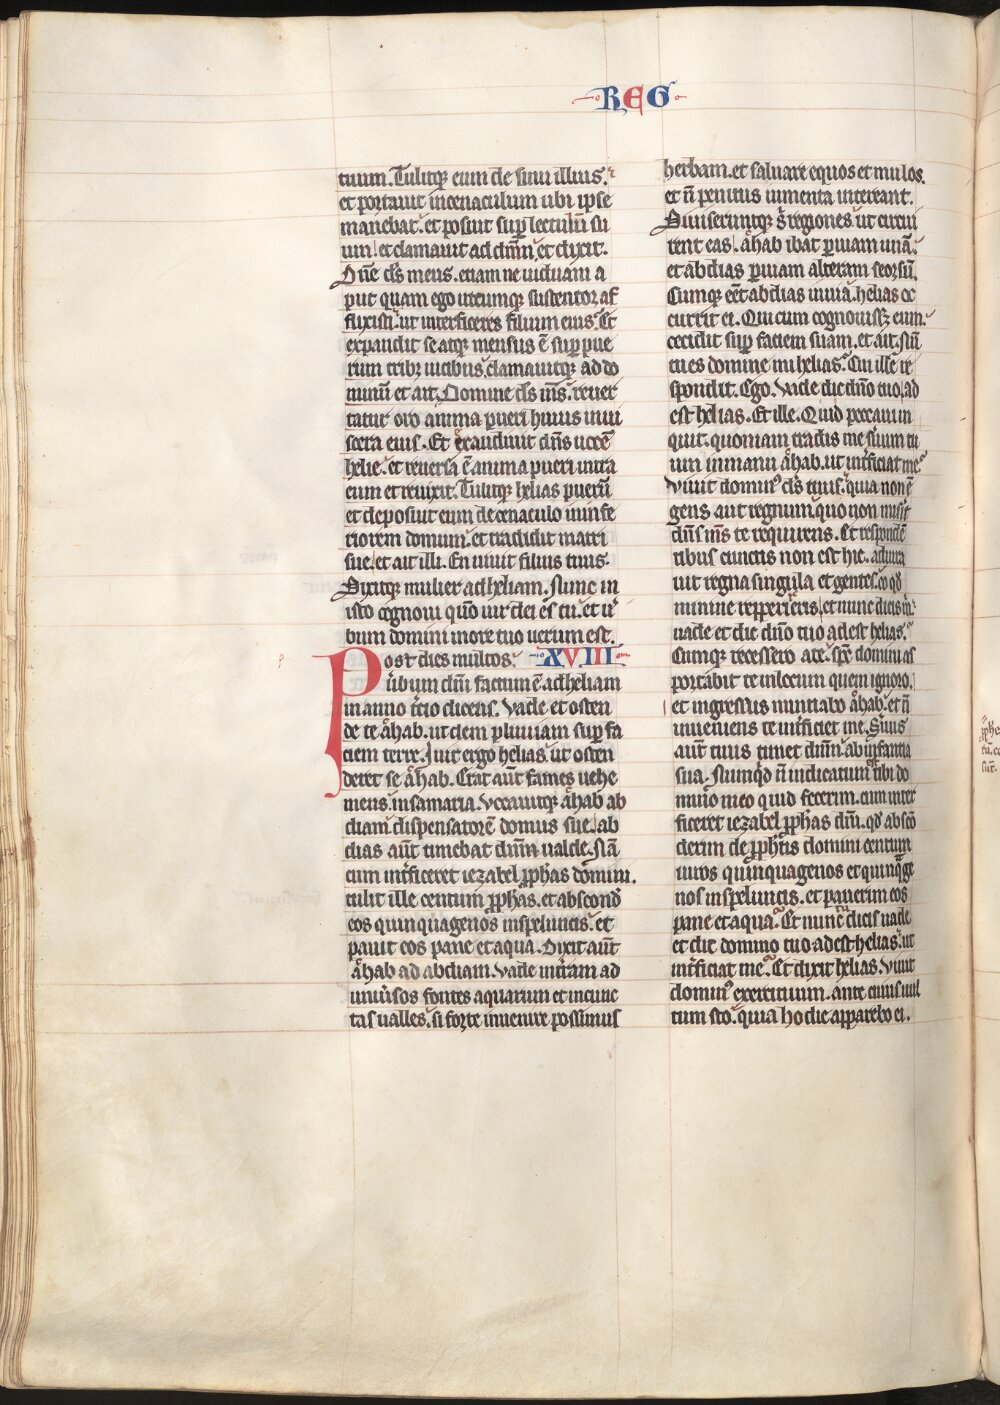 REG
tuum. Tulitq; eum de sinu illius.
et portauit incenaculum ubi ipse
manebat. et posuit sup̄ lectulū su
um. et clamauit ad dn̄m et dixit.
Dn̄e d̄s meus. etiam ne uiduam a
put quam ego utcumq; sustentor af
flixisti. ut interficeres filium eius. Et
expandit se atq; mensus ē sup̄ pue
rum trib; uicibus. clamauitq; ad do
minū et ait. Domine d̄s m̄s. reuer
tatur oro anima pueri huius inui
scera eius. Et exaudiuit dn̄s uocē
helie. et reuersa ē anima pueri intra
eum et reuixit. Tulitq; helias puerū
et deposuit eum de cenaculo in infe
riorem domum. et tradidit matri
sue. et ait illi. En uiuit filius tuus.
Dixitq; mulier ad heliam. Nunc in
isto cognoui quō uir dei es tu. et ū
bum domini inore tuo uerum est.
Post dies multos. XVIII
ūbum dn̄i factum ē ad heliam
inanno t̄cio dicens. Vade et osten
de te ahab. ut dem pluuiam sup̄ fa
ciem terre. Iuit ergo helias ut osten
deret se ahab. Erat aūt fames uehe
mens in samaria. Vocauitq; ahab ab
diam dispensatorē domus sue. ab
dias aūt timebat dn̄m ualde. Nā
cum int̄ficeret iezabel pp̄has domini.
tulit ille centum pp̄has. et abscond̄
eos quinquagenos inspeluncis. et
pauit eos pane et aqua. Dixit aūt
ahab ad abdiam. Vade int̄ram ad
uniūsos fontes aquarum et incunc
tas ualles. si forte inuenire possimus
herbam. et saluare equos et mulos.
et n̄ penitus iumenta intereant.
Diuiseruntq; s̄ regiones ut circui
rent eas. ahab ibat p̄ uiam unā.
et abdias p̄ uiam alteram seorsū.
Cumq; eēt abdias inuia. helias oc
currit ei. Qui cum cognouiss; eum.
cecidit sup̄ faciem suam. et ait. Nū
tu es domine mi helias. Cui ille re
spondit. Ego. Vade dic dn̄o tuo. ad
est helias. Et ille. Quid peccaui in
quit. quoniam tradis me seruum tu
um inmanu ahab. ut int̄ficiat me.
Viuit domin' d̄s tuus. quia non ē
gens aut regnum quo non misit̄
dn̄s m̄s te requirens. Et respondē
tibus cunctis non est hic. adiura
uit regna singula et gentes. eo qd̄
minime reppereris. et nunc dicis m̄.
uade et dic dn̄o tuo adest helias.
Cumq; recessero a te. sp̄c domini as
portabit te inlocum quem ignoro.
et ingressus nuntiabo ahab. et n̄
inueniens te int̄ficiet me. Seruus
aūt tuus timet dn̄m ab infantia
sua. Numq̄d n̄ indicatum est tibi do
mino meo quid fecerim. cum inter
ficeret iezabel pp̄has dn̄i. qd̄ absco
derim de pp̄hetis domini centum
uiros quinquagenos et quinq̄ge
nos inspeluncis. et pauerim eos
pane et aqua. Et nunc tu dicis uade
et dic domino tuo adest helias. ut
int̄ficiat me. Et dixit helias. Viuit
domin' exercituum. ante cuius uul
tum sto. quia hodie apparebo ei.